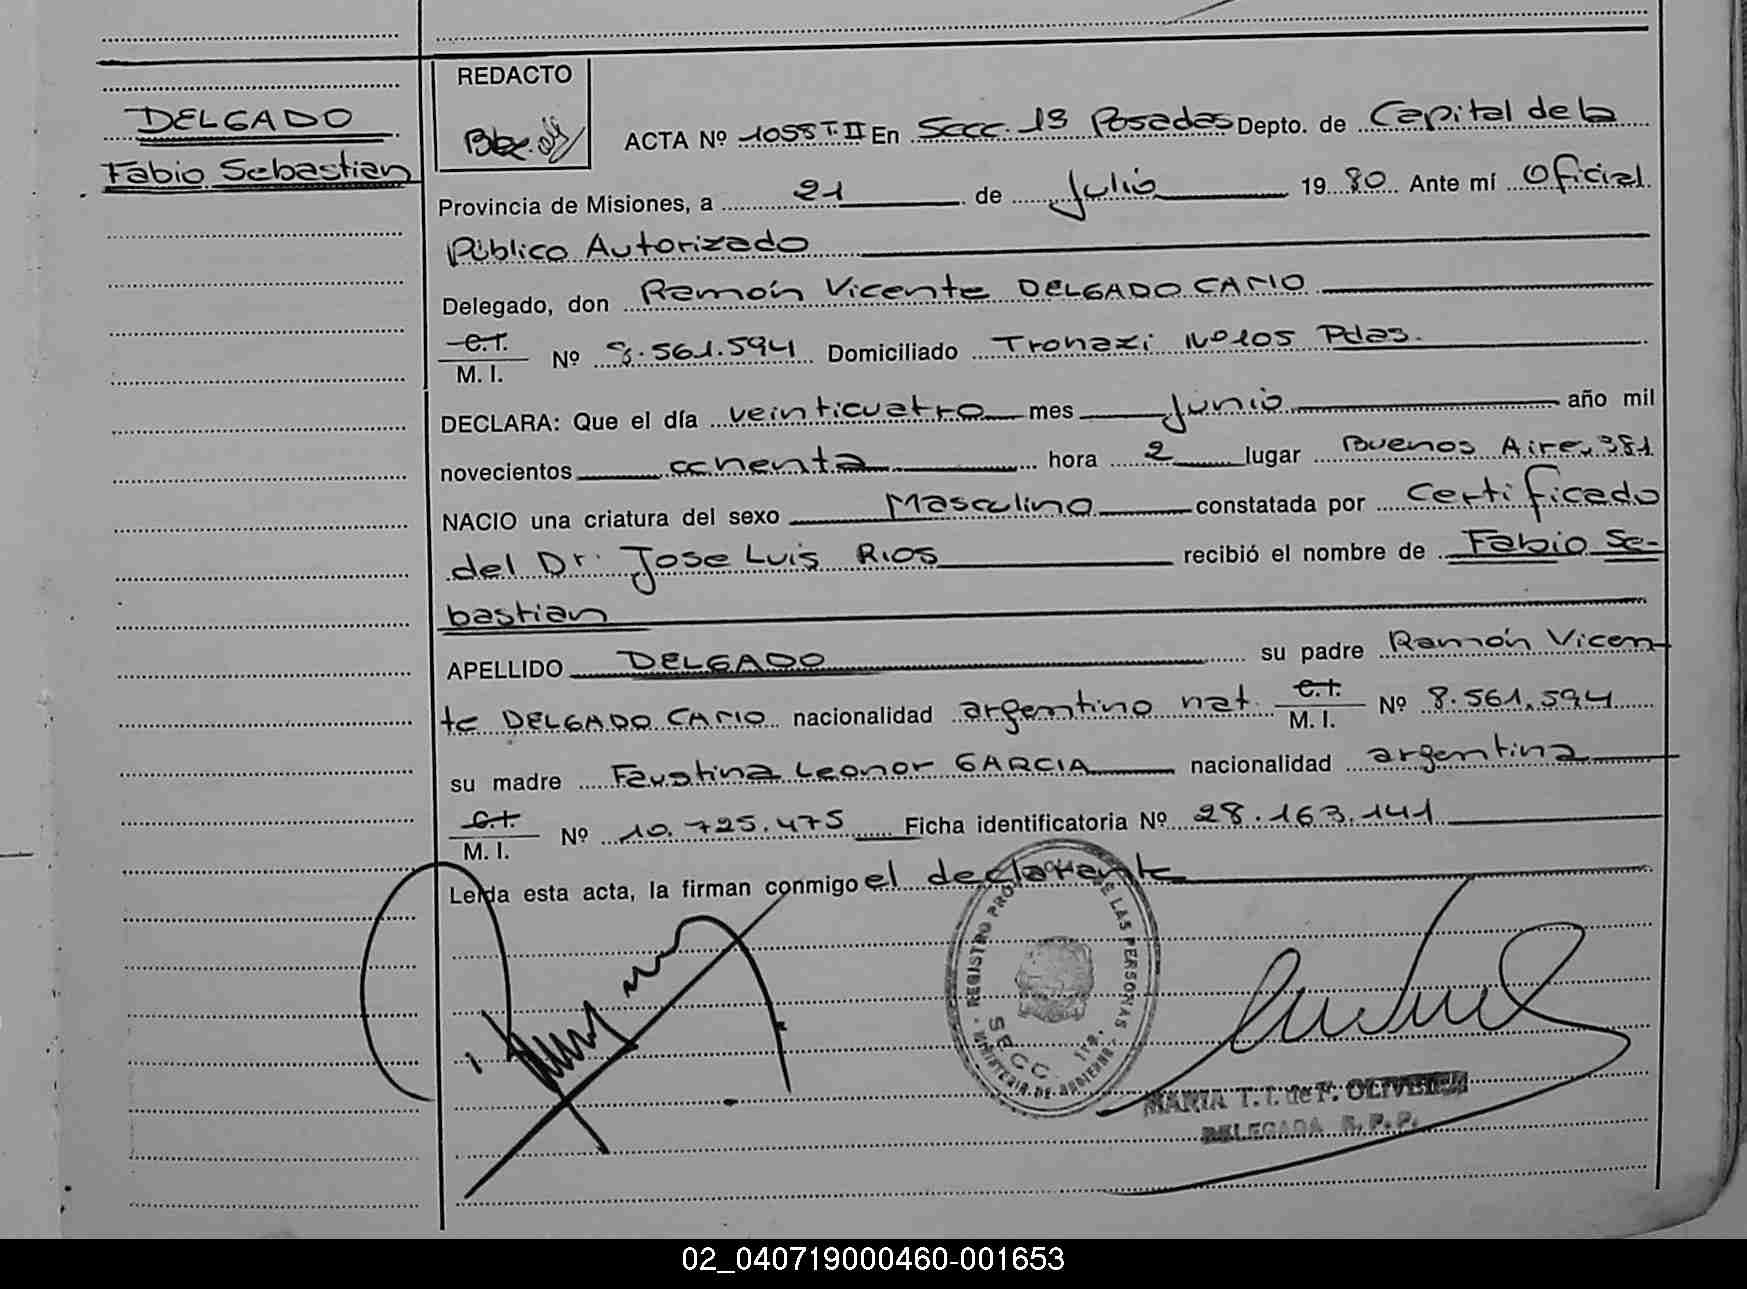 DELGADO
Fabio Sebastian
REDACTO
ACTA Nº 1058 T. II En Secc. 1ª Posadas Depto. de Capital de la
Provincia de Misiones, a 21 de Julio 19 80 Ante mí Oficial
Público Autorizado
Delegado, don Ramón Vicente DELGADO CANO
C.I.
M. I. Nº 8.561.594 Domiciliado Nº 105 Pdas.
DECLARA: Que el día veinticuatro mes Junio año mil
novecientos ochenta hora 2 lugar Buenos Aires 381
NACIO una criatura del sexo Masculino constatada por Certificado
del Dr. Jose Luis RIOS recibió el nombre de Fabio Se-
bastian
APELLIDO DELGADO su padre Ramón Vicen
te DELGADO CANO nacionalidad argentino nat. C.I.
M. I. Nº 8.561.594
su madre Faustina Leonor GARCIA nacionalidad argentina
C.I.
M. I. Nº 10.725.475 Ficha identificatoria Nº 28.163.141
Leída esta acta, la firman conmigo el declarante
REGISTRO PRO DE LAS PERSONAS
SECC. 1ra.
MINISTERIO DE GOBIERNO
MARIA T. I. de F. OLIVEIRA
DELEGADA R. P. P.
02_040719000460-001653